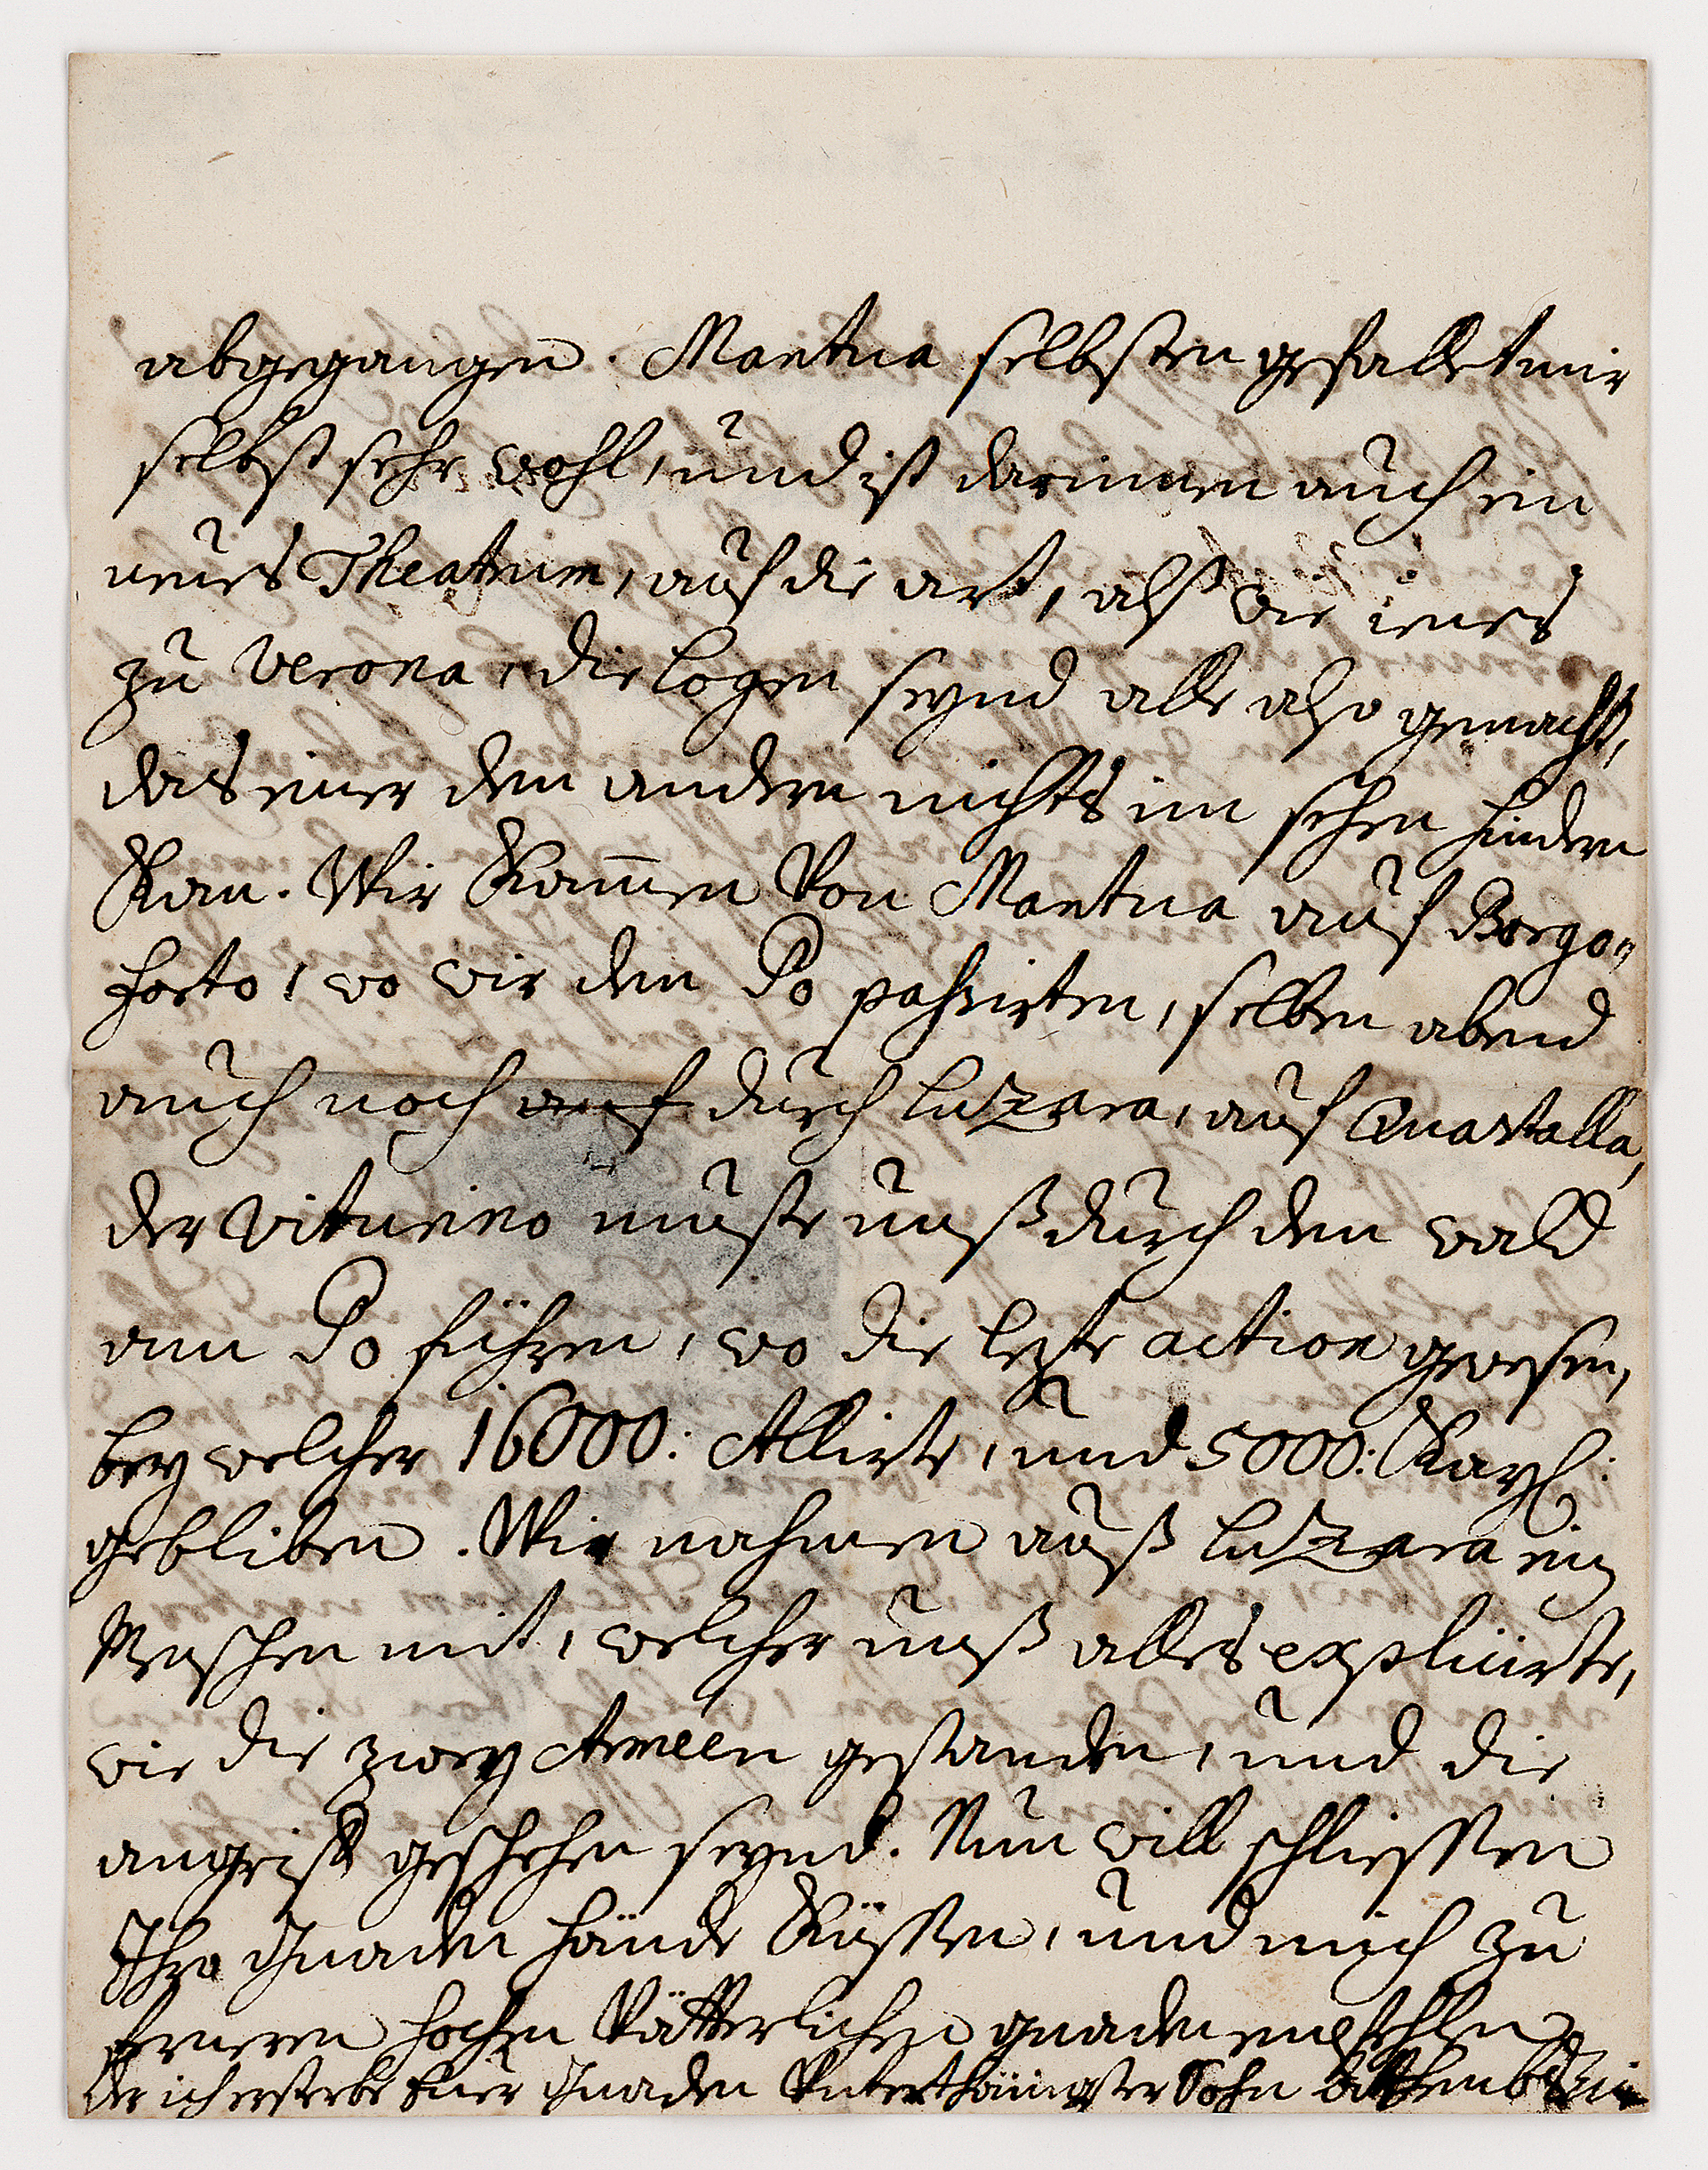 abgegangen. Mantua selbsten gefallet mir
selbst sehr wohl, und ist darinnen auch ein
neües Theatrum, auf die art, alß wie jenes
zu Verona, die logen seynd alle also gemacht,
das einer den andern nichts im sehen hindern
Kan. Wir Kam̄en Von Mantua auf Borgo„
forto, wo wir den Po passirten, selben abend
auch noch auf durch luzara, auf Guastalla,
der Viturino muste unß durch den wald
am Po führen, wo die lezte action gewesen,
bey welcher 16000: Allirte, und 5000: Kayß:
gebliben. Wir nahmen auß luzara ein
Menschen mit, welcher unß alles explicirte,
wie die zwey Armeen gestanden, und die
angriff geschehen seynd. Nun will schliessen
Ihro Gnaden hände Küssen, und mich zu
ferneren hochen Vätterlichen gnaden empfehlen
der ich ersterbe Euer Gnaden Unterthänigster Sohn